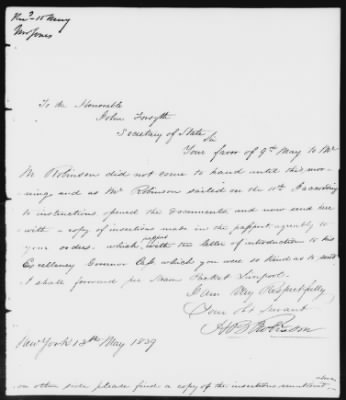 Recd 15 May
Mr Jones
To the Honorable
John Forsyth
Secretary of State
Sir
Your favor of 9th May to Mr
M Robinson did not come to hand until this mor-
ning and as Mr Robinson sailed on the 10th I according
to instructions opened the documents and now send here
with a copy of insertions made in the passport agreably to
your orders. which passport with the letter of introduction to his
Excellency Governor which you were so kind as to send
I shall forward per Steam Packet Liverpool.
I am Very Respectfully
Your Obt Servant
Robinson
New York 13th May 1839
on other side please find a copy of the insertions mentioned above